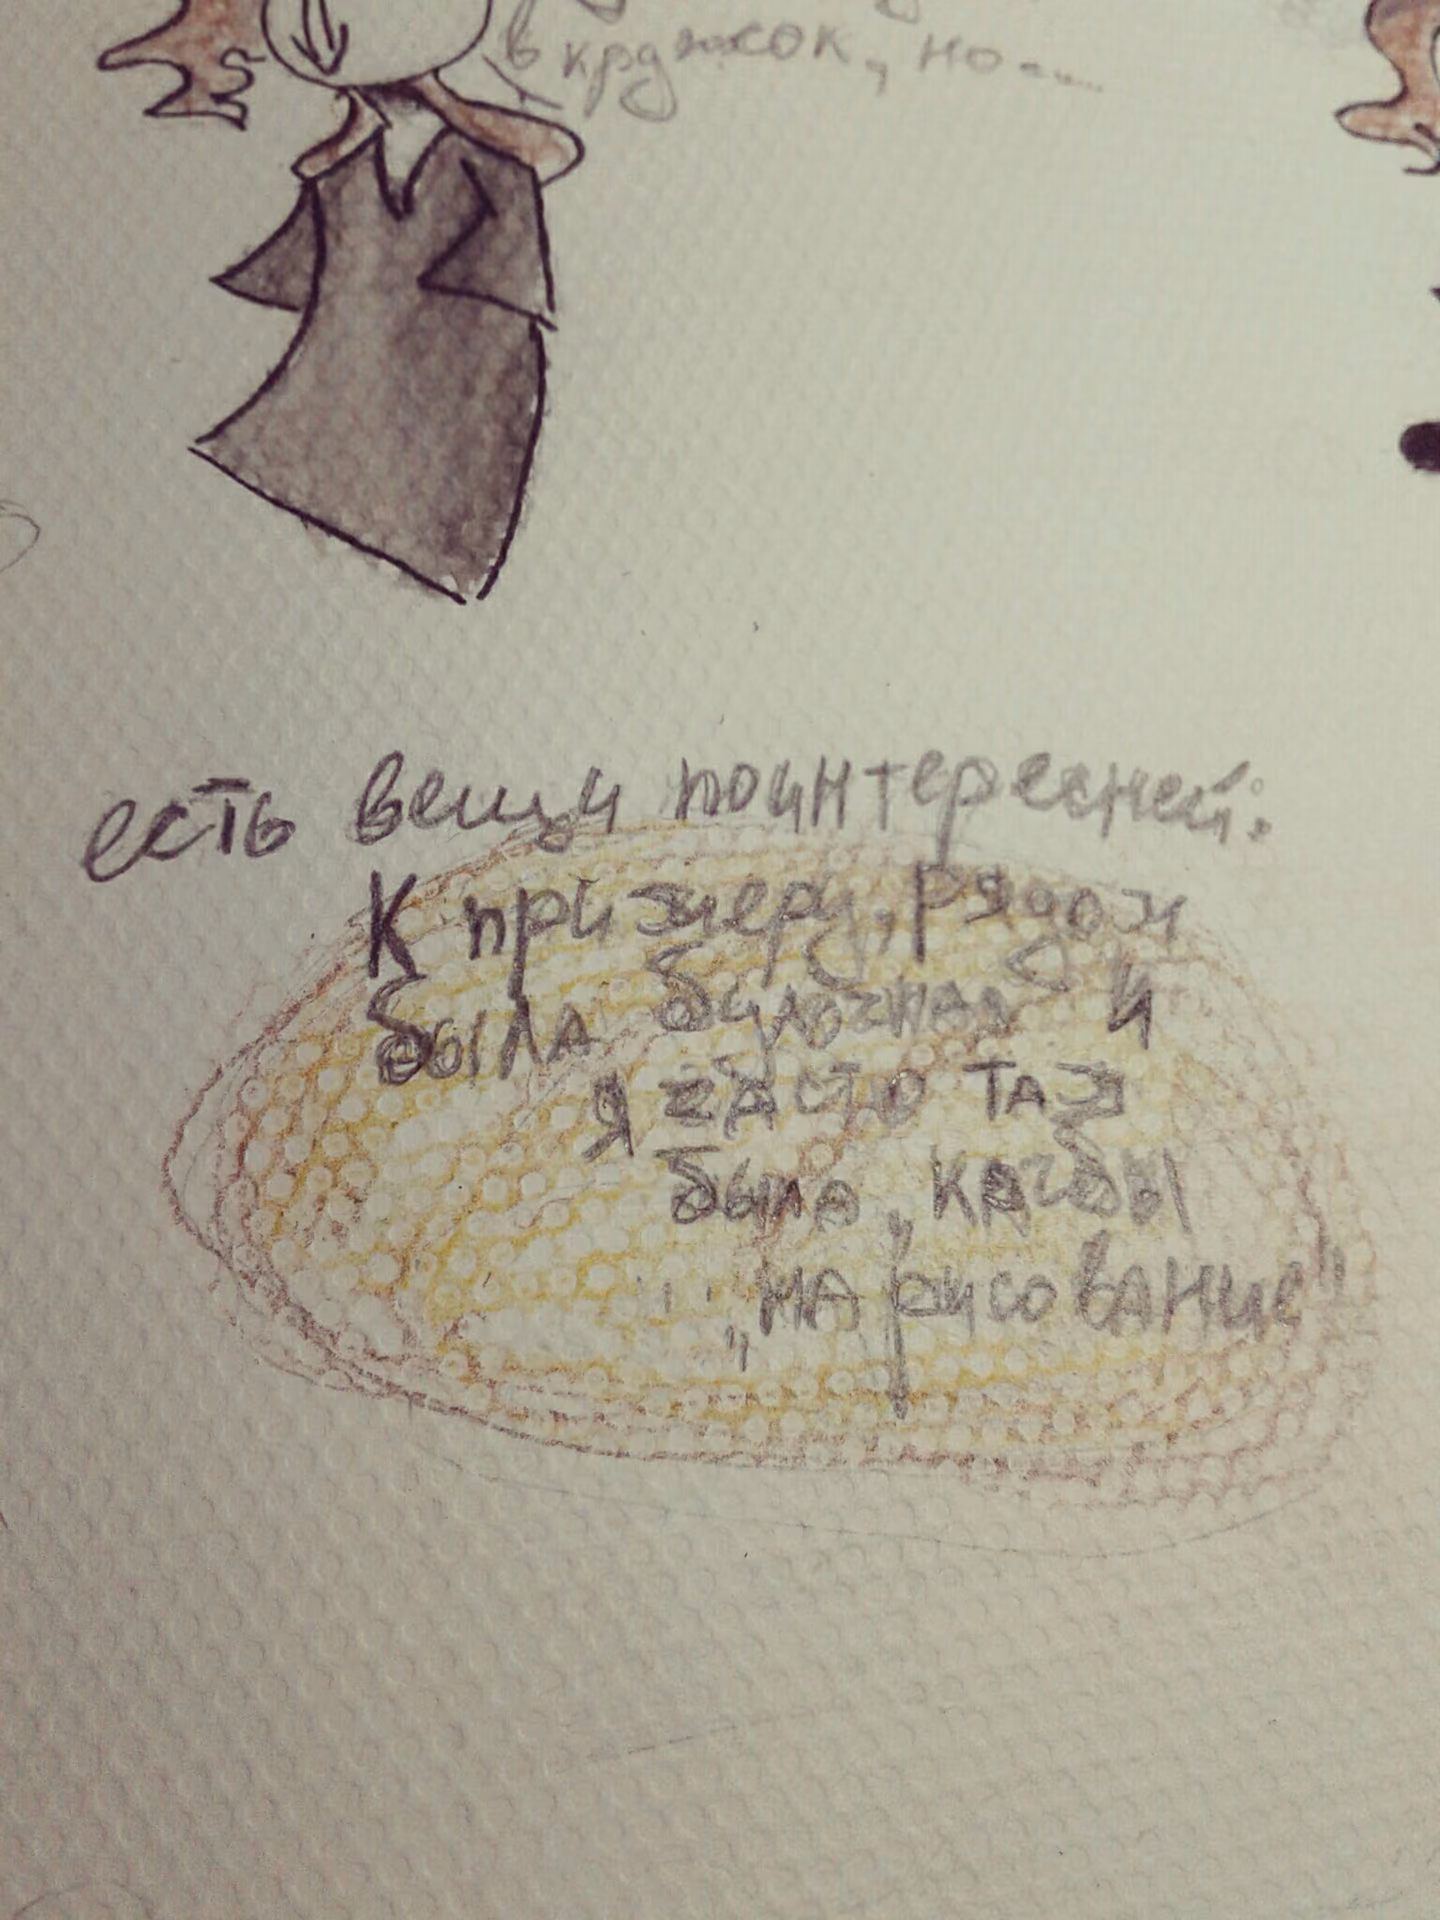 в кружок, но...
есть вещи поинтересней:
К примеру, рядом
была булочная и
я часто там
была, кагбы
"на рисование"